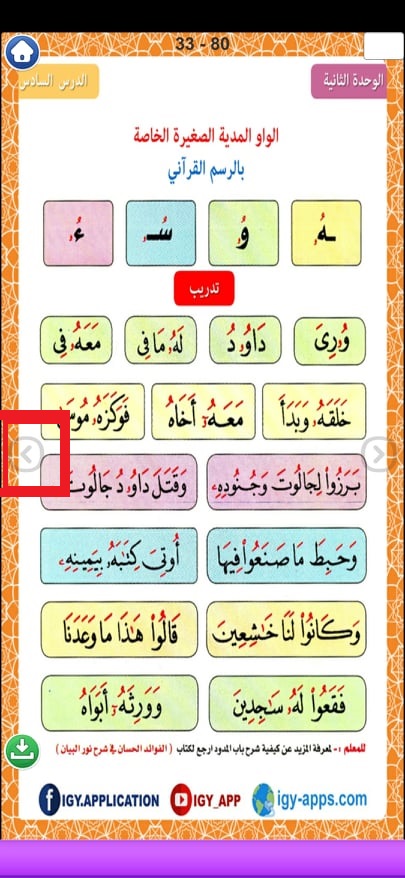 33 - 80
الوحدة الثانية
الدرس السادس
الواو المدية الصغيرة الخاصة
بالرسم القرآني
ـهُۥ وُۥ سُـ ءُۥ
تدريب
وُۥرِىَ دَاوُۥدُ لَهُۥ مَا فِى مَعَهُۥ فِى
خَلَقَهُۥ وَبَدَأَ مَعَهُۥٓ أَخَاهُ فَوَكَزَهُۥ مُوسَىٰ
بَرَزُوا۟ لِجَالُوتَ وَجُنُودِهِۦ وَقَتَلَ دَاوُۥدُ جَالُوتَ
وَحَبِطَ مَا صَنَعُوا۟ فِيهَا أُوتِىَ كِتَٰبَهُۥ بِيَمِينِهِۦ
وَكَانُوا۟ لَنَا خَٰشِعِينَ قَالُوا۟ هَٰذَا مَا وَعَدَنَا
فَقَعُوا۟ لَهُۥ سَٰجِدِينَ وَوَرِثَهُۥٓ أَبَوَاهُ
للمعلم :- لمعرفة المزيد عن كيفية شرح باب المدود ارجع لكتاب ( الفوائد الحسان في شرح نور البيان )
IGY.APPLICATION IGY_APP igy-apps.com